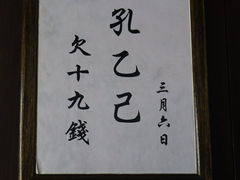 三月六日
孔乙己
欠十九錢